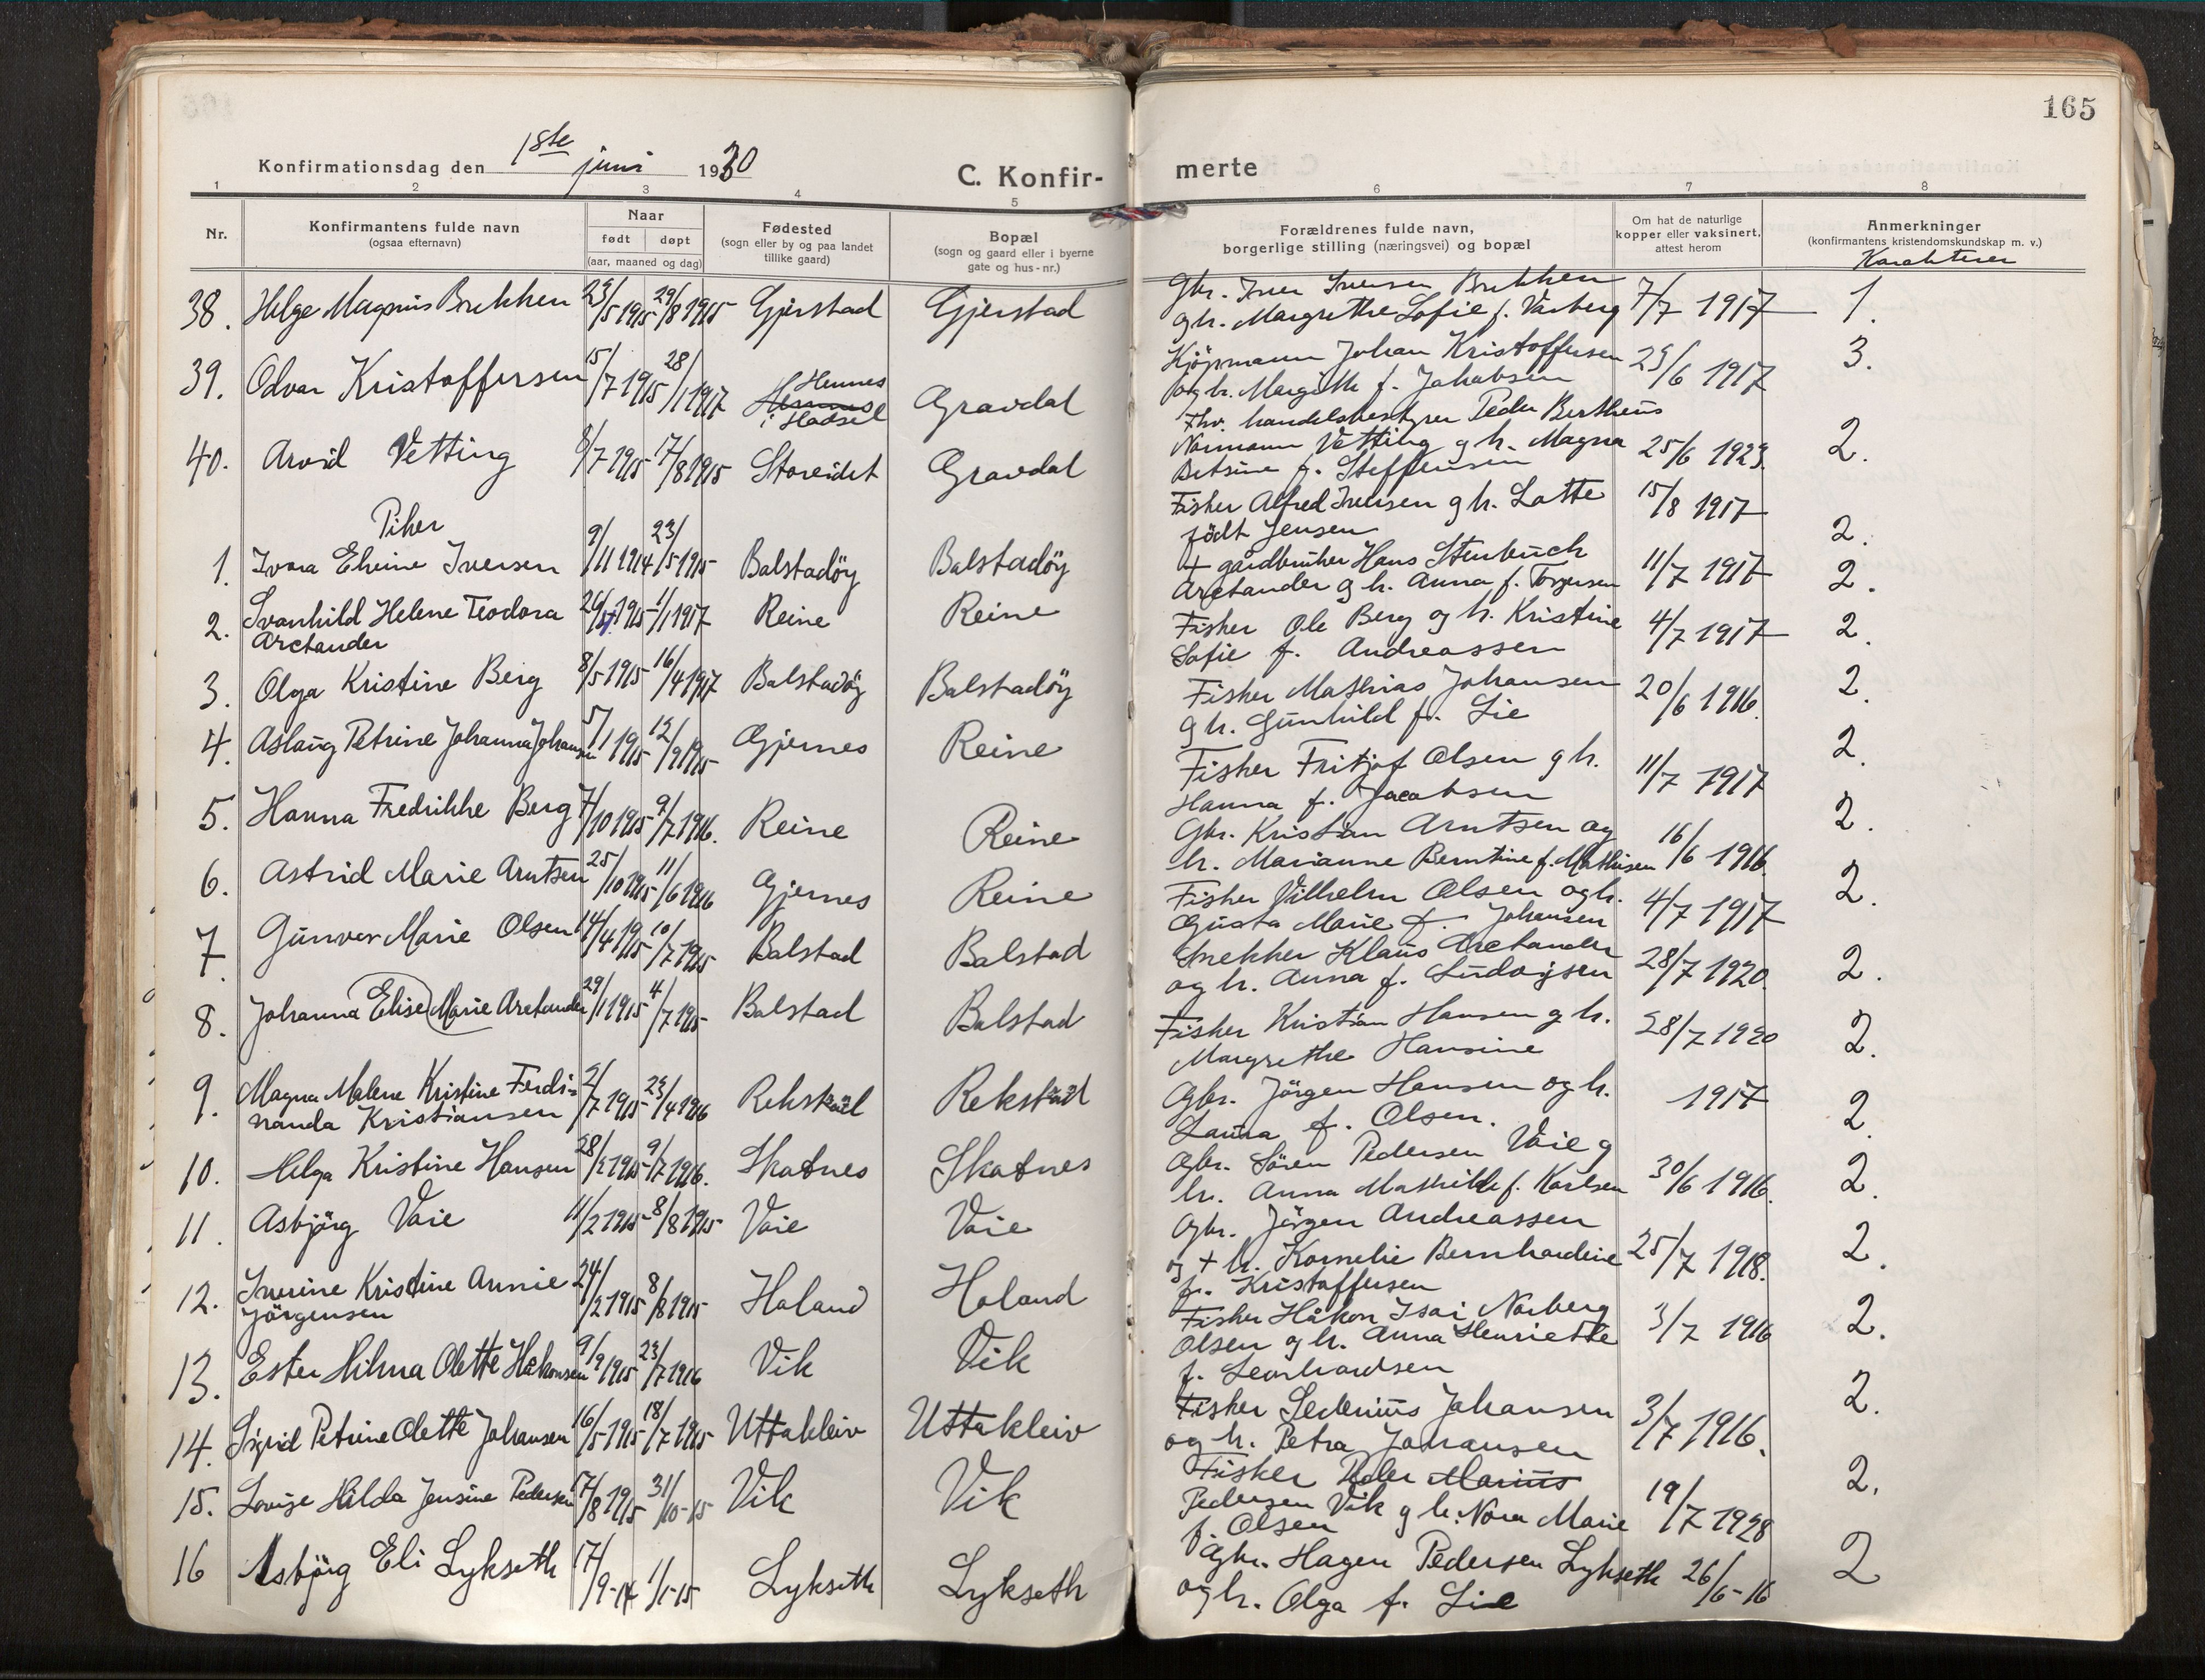 165
Konfirmationsdag den 1ste juni 1930
C. Konfir- merte
1 2 3 4 5 6 7 8
Nr.
Konfirmantens fulde navn
(ogsaa efternavn)
Naar
født døpt
(aar, maaned og dag)
Fødested
(sogn eller by og paa landet
tillike gaard)
Bopæl
(sogn og gaard eller i byerne
gate og hus-nr.)
Forældrenes fulde navn,
borgerlige stilling (næringsvei) og bopæl
Om hat de naturlige
kopper eller vaksinert,
attest herom
Anmerkninger
(konfirmantens kristendomskundskap m. v.)
Karakterer
38. Helge Magnus Brekken 29/8 1915 Gjerstad Gjerstad
Gbr. Iver Iversen Brekken
g h. Margrethe Sofie f. Varberg 7/7 1917 1.
39. Odvar Kristoffersen 15/7 1915 28/1 1917 Hennes
i Hadsel Gravdal
Kjöpmann Johan Kristoffersen
og h. Margith f. Jakobsen 29/6 1917 3.
40. Arvid Vetting 8/7 1915 17/8 1915 Storeidet Gravdal
Fhv. handelsbestyrer Peder Bertheus
Normann Vetting g h. Magna
Betsine f. Steffensen 25/6 1923. 2.
Piker
1. Ivara Eline Iversen 9/11 1914 23/5 1915 Balstadöy Balstadöy
Fisker Alfred Iversen g h. Lotte
födt Jensen 15/8 1917 2.
2. Svanhild Helene Teodora
Arctander 1915 1/1 1917 Reine Reine
+ gårdbruker Hans Stenbuch
Arctander g h. Anna f. Torgersen 11/7 1917 2.
3. Olga Kristine Berg 8/5 1915 16/4 1917 Balstadöy Balstadöy
Fisker Ole Berg og h. Kristine
Sofie f. Andreassen 4/7 1917 2.
4. Aslaug Petrine Johanna Johansen 5/1 1915 12/9 1915 Gjernes Reine
Fisker Mathias Johansen
g h. Gunhild f. Lie 20/6 1916. 2.
5. Hanna Fredrikke Berg 7/10 1915 9/7 1916. Reine Reine
Fisker Fritjof Olsen g h.
Hanna f. Jacobsen 11/7 1917 2.
6. Astrid Marie Arntsen 25/10 1915 11/6 1916 Gjernes Reine
Gbr. Kristian Arntsen og
h. Marianne Berntine f. Mathisen 16/6 1916. 2.
7. Gunvor Marie Olsen 14/4 1915 10/7 1915 Balstad Balstad
Fisker Vilhelm Olsen og h.
Gusta Marie f. Johansen 4/7 1917 2.
8. Johanna Elise Marie Arctander 29/1 1915 4/7 1915 Balstad Balstad
Snekker Klaus Arctander
og h. Anna f. Ludvigsen 28/7 1920. 2.
9. Magna Malene Kristine Ferdi-
nanda Kristiansen 2/7 1915 23/4 1916 Rekstad Rekstad
Fisker Kristian Hansen g h.
Margrethe Hansine 28/7 1920 2.
10. Helga Kristine Hansen 28/2 1915 9/7 1916. Skotnes Skotnes
Gbr. Jörgen Hansen og h.
Laura f. Olsen. 1917 2.
11. Asbjörg Vaie 11/2 1915 8/8 1915 Vaie Vaie
Gbr. Sören Pedersen Vaie g
h. Anna Mathilde f. Karlsen 30/6 1916. 2.
12. Iverine Kristine Annie
Jörgensen 24/2 1915 8/8 1915 Holand Holand
Gbr. Jörgen Andreassen
og + h. Kornelie Bernhardine
f. Kristoffersen 25/7 1918. 2.
13. Ester Hilma Olette Håkonsen 9/9 1915 23/7 1916 Vik Vik
Fisker Håkon Isai Norberg
Olsen g h. Anna Henriette
f. Leonhardsen 3/7 1916 2.
14. Sigrid Petrine Olette Johansen 16/5 1915 18/7 1915 Uttakleiv Uttakleiv
Fisker Sedenius Johansen
og h. Petra Johansen 3/7 1916. 2.
15. Lovise Hilda Jensine Pedersen 17/8 1915 31/10-15 Vik Vik
Fisker Peder Marius
Pedersen Vik g h. Nora Marie
f. Olsen 19/7 1928 2.
16 Asbjörg Eli Lykseth 17/9-14 1/1-15 Lykseth Lykseth
Gbr. Hagen Pedersen Lykseth
og h. Olga f. Lie 26/6-16 2